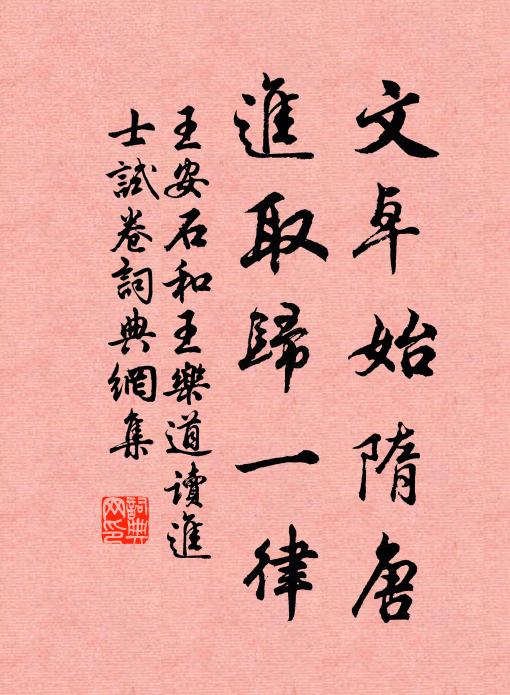 文卓始隋唐
進取歸一律
王安石和王樂道讀進
士試卷詞典網集
詞典
网印